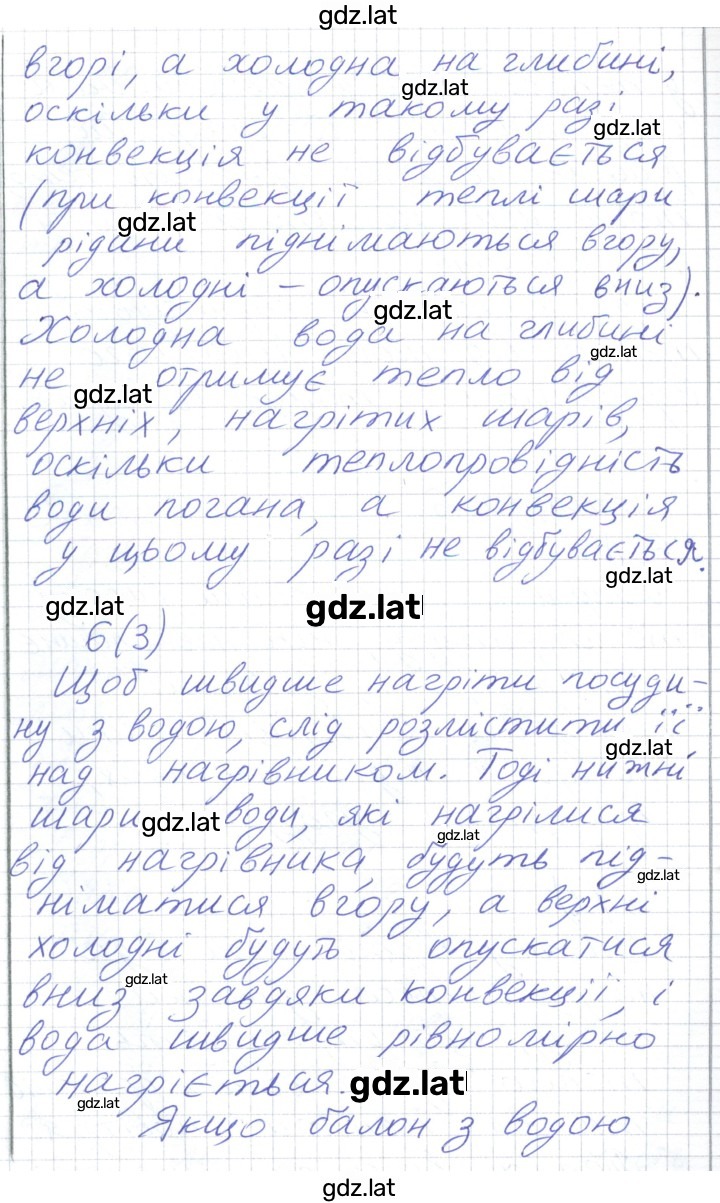 gdz.lat
вгорі, а холодна на глибині,
gdz.lat
оскільки у такому разі
gdz.lat
конвекція не відбувається
(при конвекції теплі шари
gdz.lat
рідани піднімаються вгору,
а холодні – опускаються вниз).
gdz.lat
Холодна вода на глибині
gdz.lat
не отримує тепло від
gdz.lat
верхніх, нагрітих шарів,
оскільки теплопровідність
води погана, а конвекція
у цьому разі не відбувається.
gdz.lat
gdz.lat gdz.lat
6(3)
Щоб швидше нагріти посуди-
ну з водою, слід розмістити її
gdz.lat
над нагрівником. Тоді нижні
шари води, які нагрілися
gdz.lat
gdz.lat
від нагрівника, будуть під-
gdz.lat
німатися вгору, а верхні
холодні будуть опускатися
gdz.lat
вниз завдяки конвекції, і
вода швидше рівномірно
нагріється.
gdz.lat
gdz.lat
Якщо балон з водою
gdz.lat